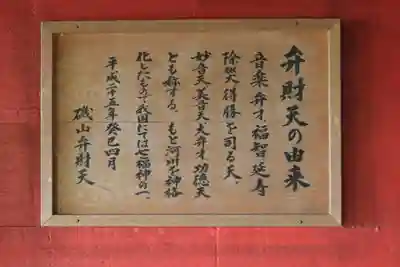 弁財天の由来
音楽、弁才、福智、延寿、
除災、得勝を司る天、
妙音天、美音天、大弁才功徳天
とも称する。もと河川を神格
化したもので我国にては七福神の一、
平成二十五年癸巳四月
磯山弁財天